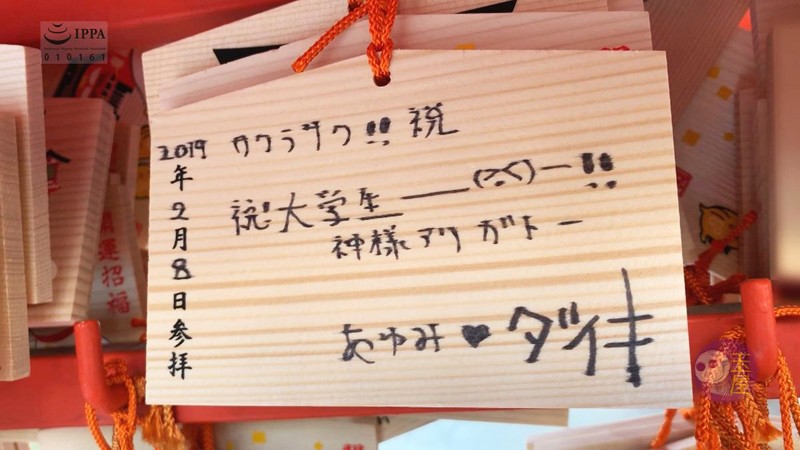 IPPA
010161
2019年2月8日参拝
サクラサク!! 祝
祝!大学生――(^^)ー!!
神様アリガトー
あゆみ♥ダイキ
開運招福